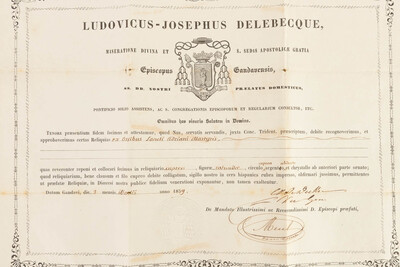 LUDOVICUS-JOSEPHUS DELEBECQUE,
MISERATIONE DIVINA ET S. SEDIS APOSTOLICÆ GRATIA
Episcopus Gandavensis,
SS. DD. NOSTRI PRÆLATUS DOMESTICUS,
PONTIFICIO SOLIO ASSISTENS, AC S. CONGREGATIONIS EPISCOPORUM ET REGULARIUM CONSULTOR, ETC.
Omnibus has visuris Salutem in Domino.
Tenore præsentium fidem facimus et attestamur, quod Nos, servatis servandis, juxta Conc. Trident. præscriptum, debite recognoverimus, et
approbaverimus sacras Reliquias ex Ossibus Sancti Martyris
quas reverenter reponi et collocari fecimus in reliquiario figuræ crystallo ab anteriori parte ornato;
quod reliquiarium, bene clausum et filo serico debite colligatum, sigillo nostro in cera hispanica rubro impresso, obsignari jussimus, permittentes
ut prædictæ Reliquiæ, in Diœcesi nostra publicæ fidelium venerationi exponantur, non tamen exaltentur.
Datum Gandavi, die 3 mensis anno 1859.
De Mandato Illustrissimi ac Reverendissimi D. Episcopi præfati,